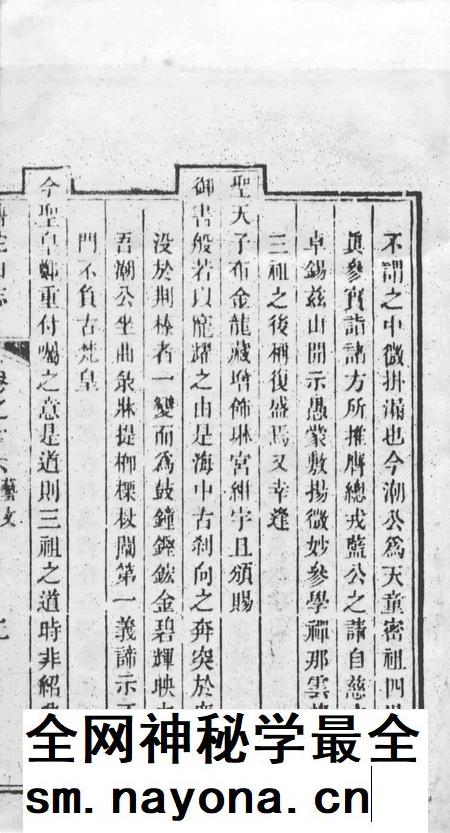 不謂之中微掛漏也今潮公爲天童密祖四世
眞參實詣諸方所推膺總戎藍公之請自慈
卓錫兹山開示愚蒙敷揚微妙參學禪那雲
三祖之後稱復盛焉又幸逢
聖天子布金龍藏增飾琳宮紺宇且頒賜
御書般若以寵耀之由是海中古刹向之奔突於
没於荆榛者一變而爲鼓鐘鏗鋐金碧輝映
吾潮公坐曲彔牀提楖𣗖杖闡第一義諦示
門不負古梵皇
今聖皇鄭重付囑之意是道則三祖之道時非紹
卷之 藝文
全网神秘学最全
sm.nayona.cn